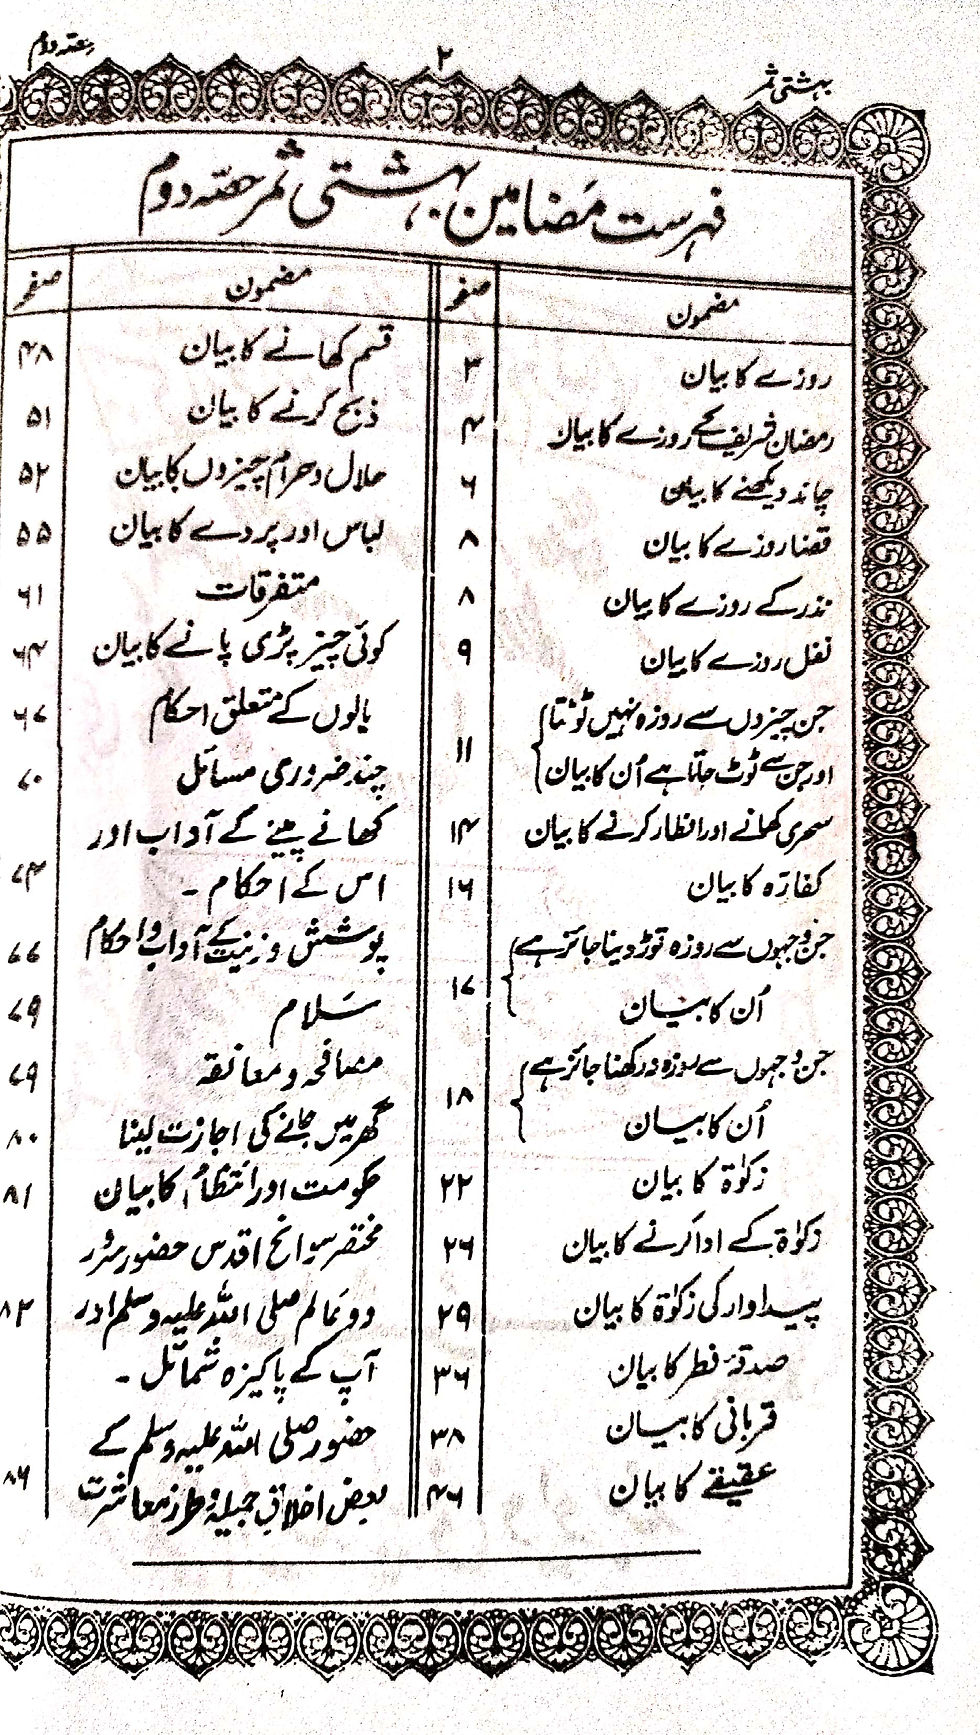 بہشتی ثمر
۲
حصہ دوم
فہرست مضامین بہشتی ثمر حصہ دوم
مضمون
صفحہ
روزے کا بیان
۳
رمضان شریف کے روزے کا بیان
۴
چاند دیکھنے کا بیان
۶
قضا روزے کا بیان
۸
نذر کے روزے کا بیان
۸
نفل روزے کا بیان
۹
جن چیزوں سے روزہ نہیں ٹوٹتا
اور جن سے ٹوٹ جاتا ہے اُن کا بیان
۱۱
سحری کھانے اور افطار کرنے کا بیان
۱۴
کفارہ کا بیان
۱۶
جن وجہوں سے روزہ توڑ دینا جائز ہے
اُن کا بیان
۱۷
جن وجہوں سے روزہ نہ رکھنا جائز ہے
اُن کا بیان
۱۸
زکوٰۃ کا بیان
۲۲
زکوٰۃ کے ادا کرنے کا بیان
۲۶
پیداوار کی زکوٰۃ کا بیان
۲۹
صدقۂ فطر کا بیان
۳۶
قربانی کا بیان
۳۸
عقیقے کا بیان
۴۶
مضمون
صفحہ
قسم کھانے کا بیان
۴۸
ذبح کرنے کا بیان
۵۱
حلال و حرام چیزوں کا بیان
۵۲
لباس اور پردے کا بیان
۵۵
متفرقات
۶۱
کوئی چیز پڑی پانے کا بیان
۶۴
بالوں کے متعلق احکام
۶۷
چند ضروری مسائل
۷۰
کھانے پینے کے آداب اور
اس کے احکام ۔
۷۴
پوشش و زینت کے آداب و احکام
۷۷
سَلام
۷۹
مصافحہ و معانقہ
۷۹
گھر میں جانے کی اجازت لینا
۸۰
حکومت اور انتظام کا بیان
۸۱
مختصر سوانح اقدس حضور سرور
دو عالم صلی اللہ علیہ وسلم اور
۸۳
آپ کے پاکیزہ شمائل ۔
حضور صلی اللہ علیہ وسلم کے
بعض اخلاق جمیلہ و طرز معاشرت
۸۶